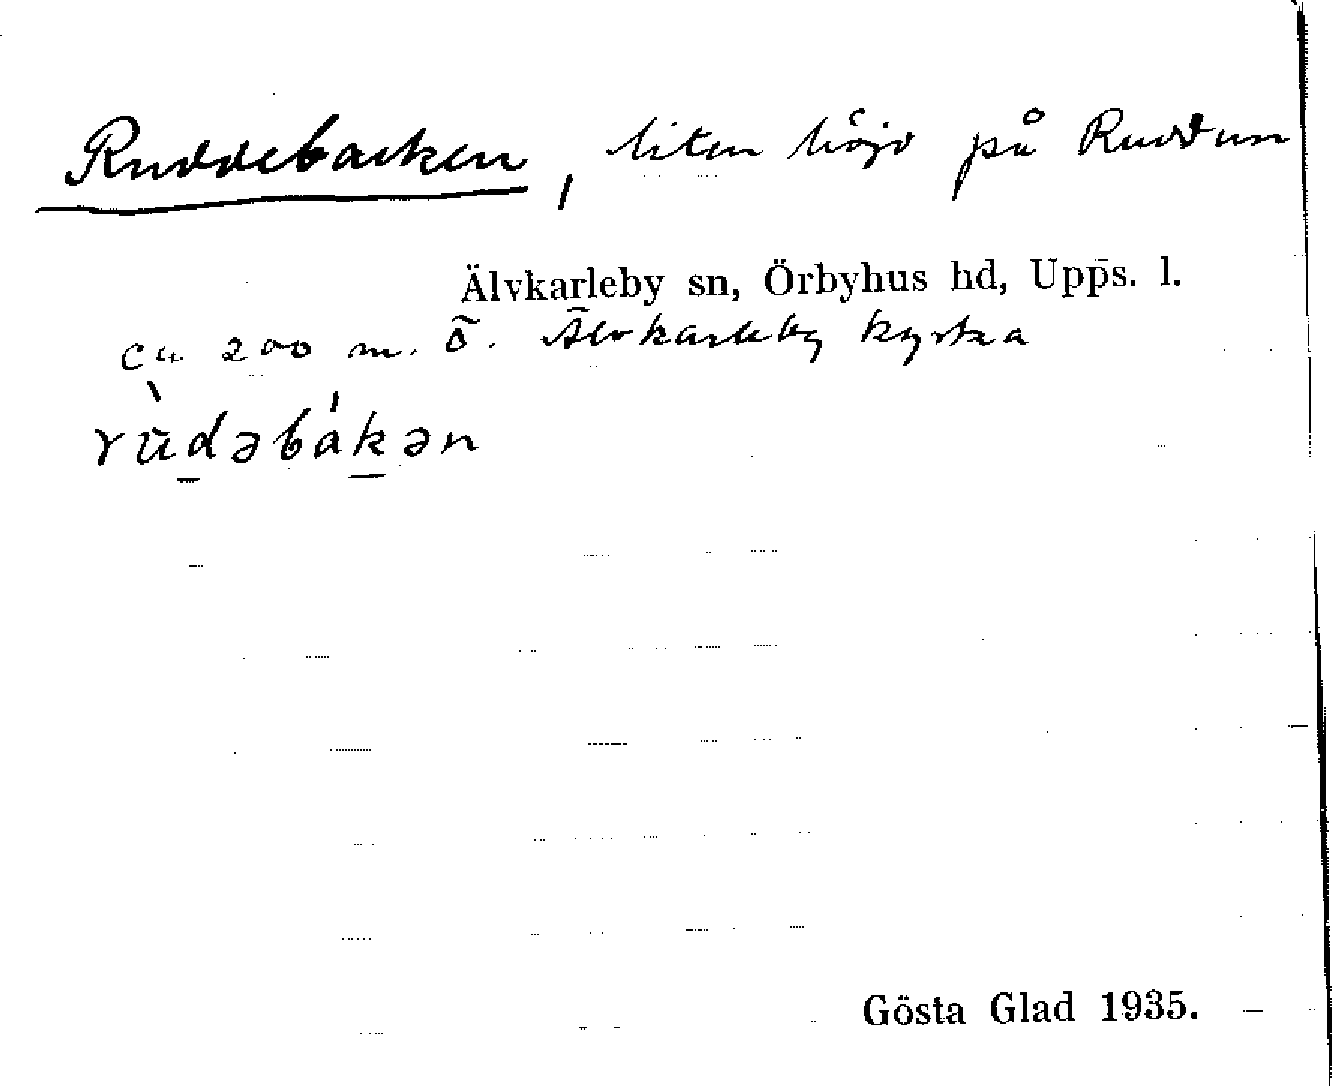 Ruddebacken, liten höjd på Ruddun
Älvkarleby sn, Örbyhus hd, Upps. l.
ca 200 m. ö. Älvkarleby kyrka
rùd̲əbák̲ən
Gösta Glad 1935.